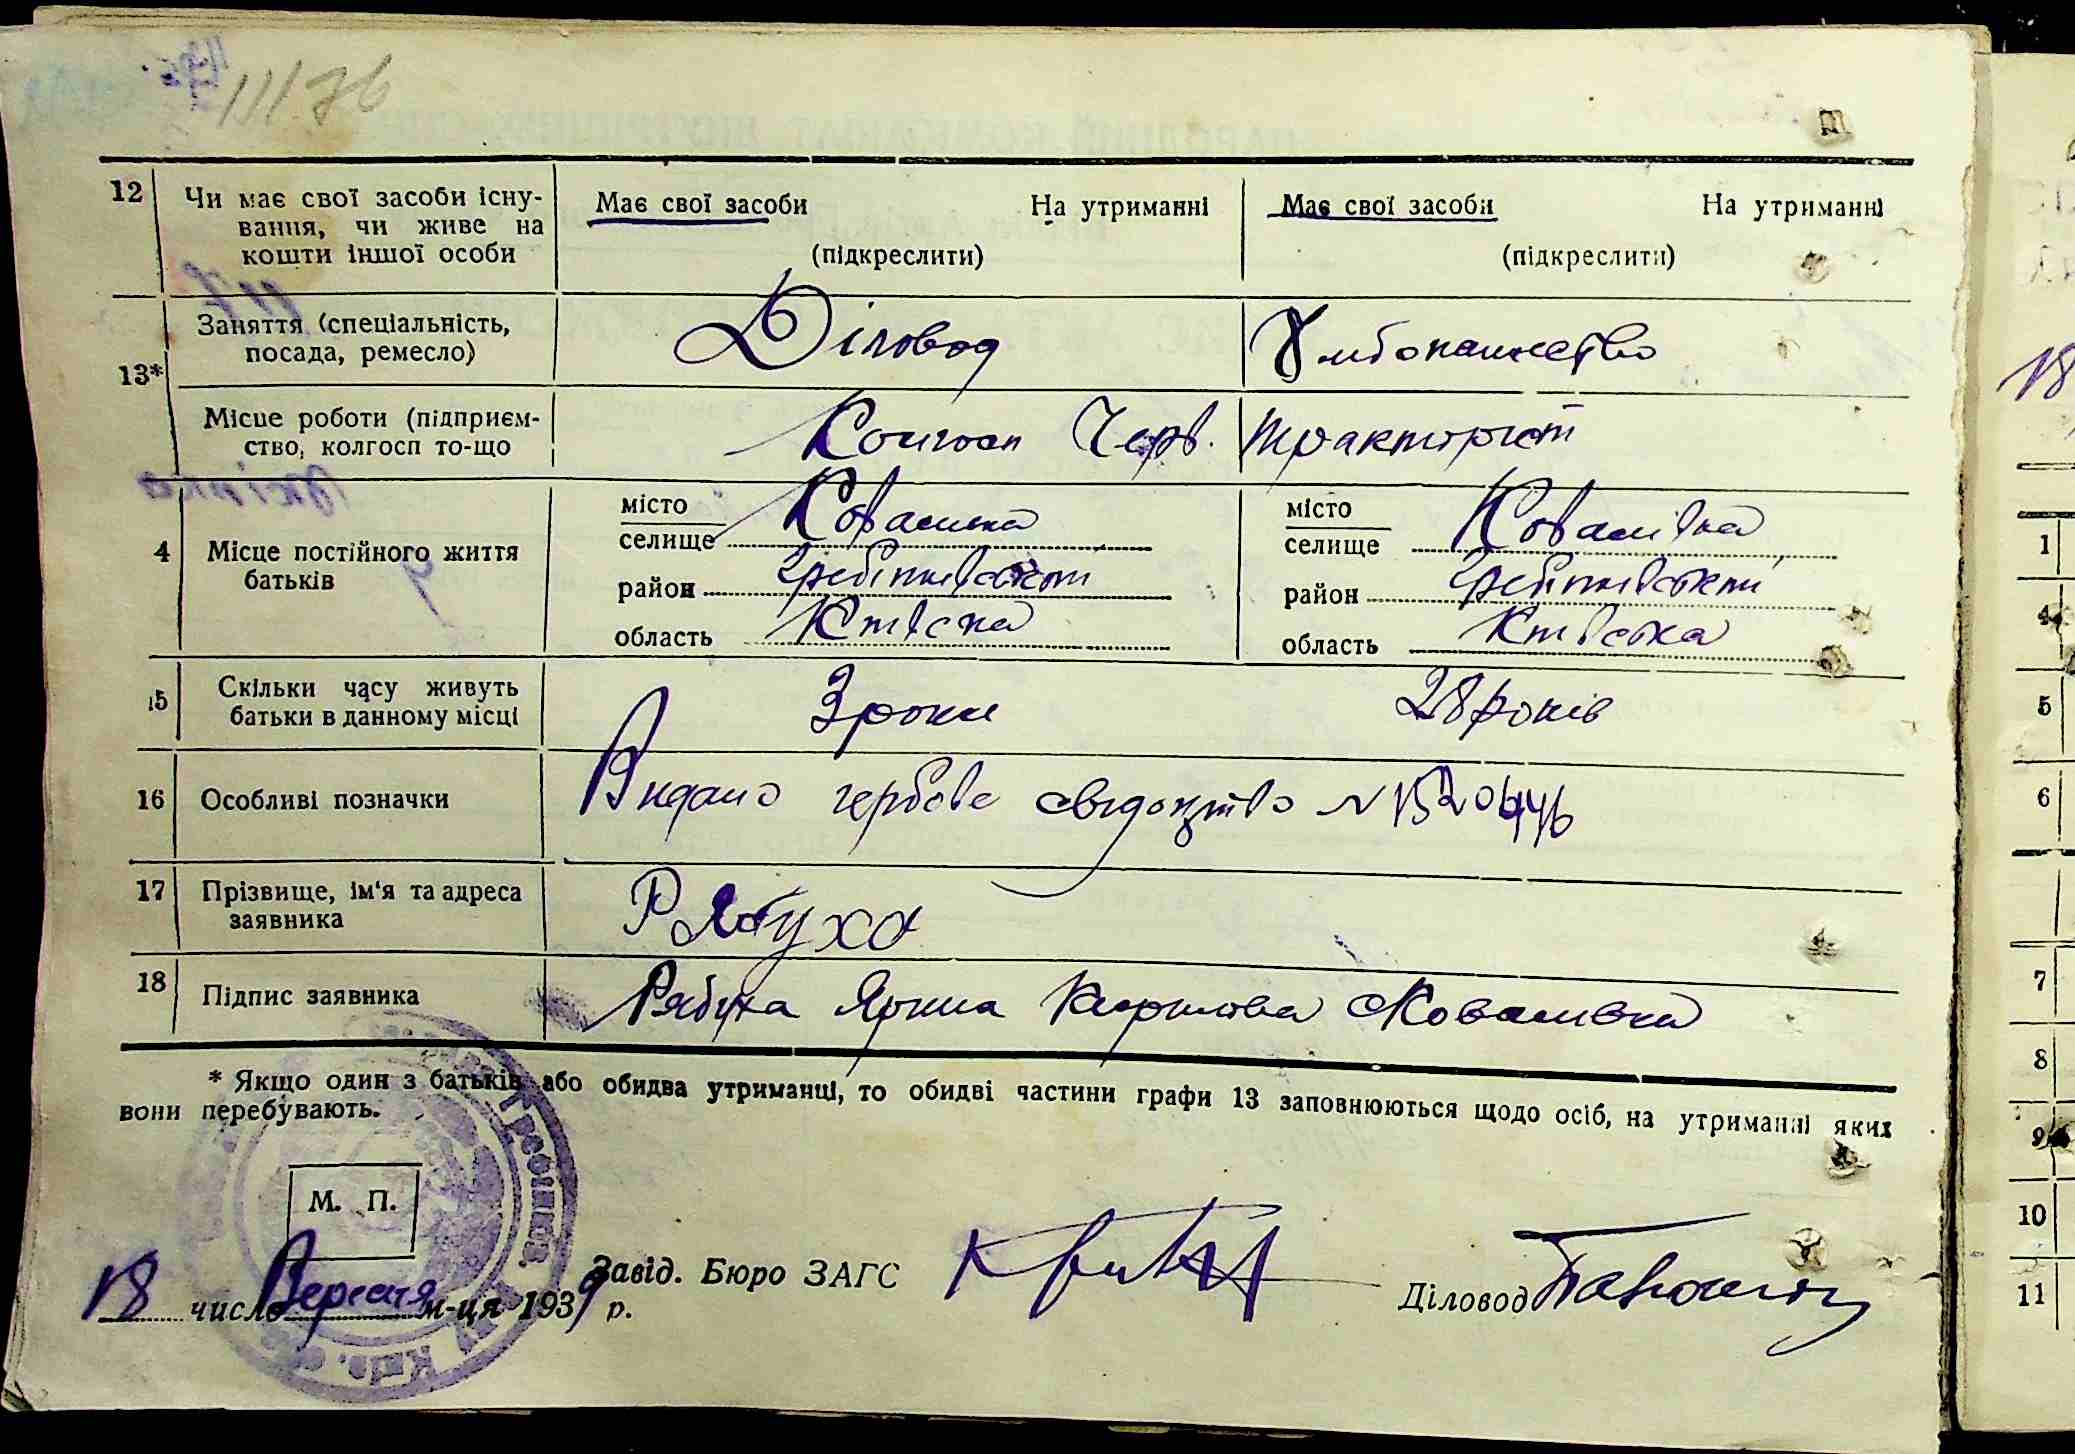 11176
12 Чи має свої засоби існу- Має свої засоби На утриманні Має свої засоби На утриманні
вання, чи живе на
кошти іншої особи (підкреслити) (підкреслити)
13* Заняття (спеціальність, Діловод
посада, ремесло)
Місце роботи (підприєм- Колгосп Черв. тракторист
ство, колгосп то-що
4 Місце постійного життя місто Ковалівка місто Ковалівка
батьків селище селище
район Гребінківський район Гребінківський
область Київська область Київська
15 Скільки часу живуть 3 роки 28 років
батьки в данному місці
16 Особливі позначки Видано гербове свідоцтво N
17 Прізвище, ім'я та адреса Рябуха
заявника
18 Підпис заявника Рябуха Ярина Кирилова с Коваливка
* Якщо один з батьків або обидва утриманці, то обидві частини графи 13 заповнюються щодо осіб, на утриманні яких
вони перебувають.
М. П.
18 число Вересня м-ця 1939 р.
Завід. Бюро ЗАГС
Діловод
18
1
4
5
6
7
8
9
10
11